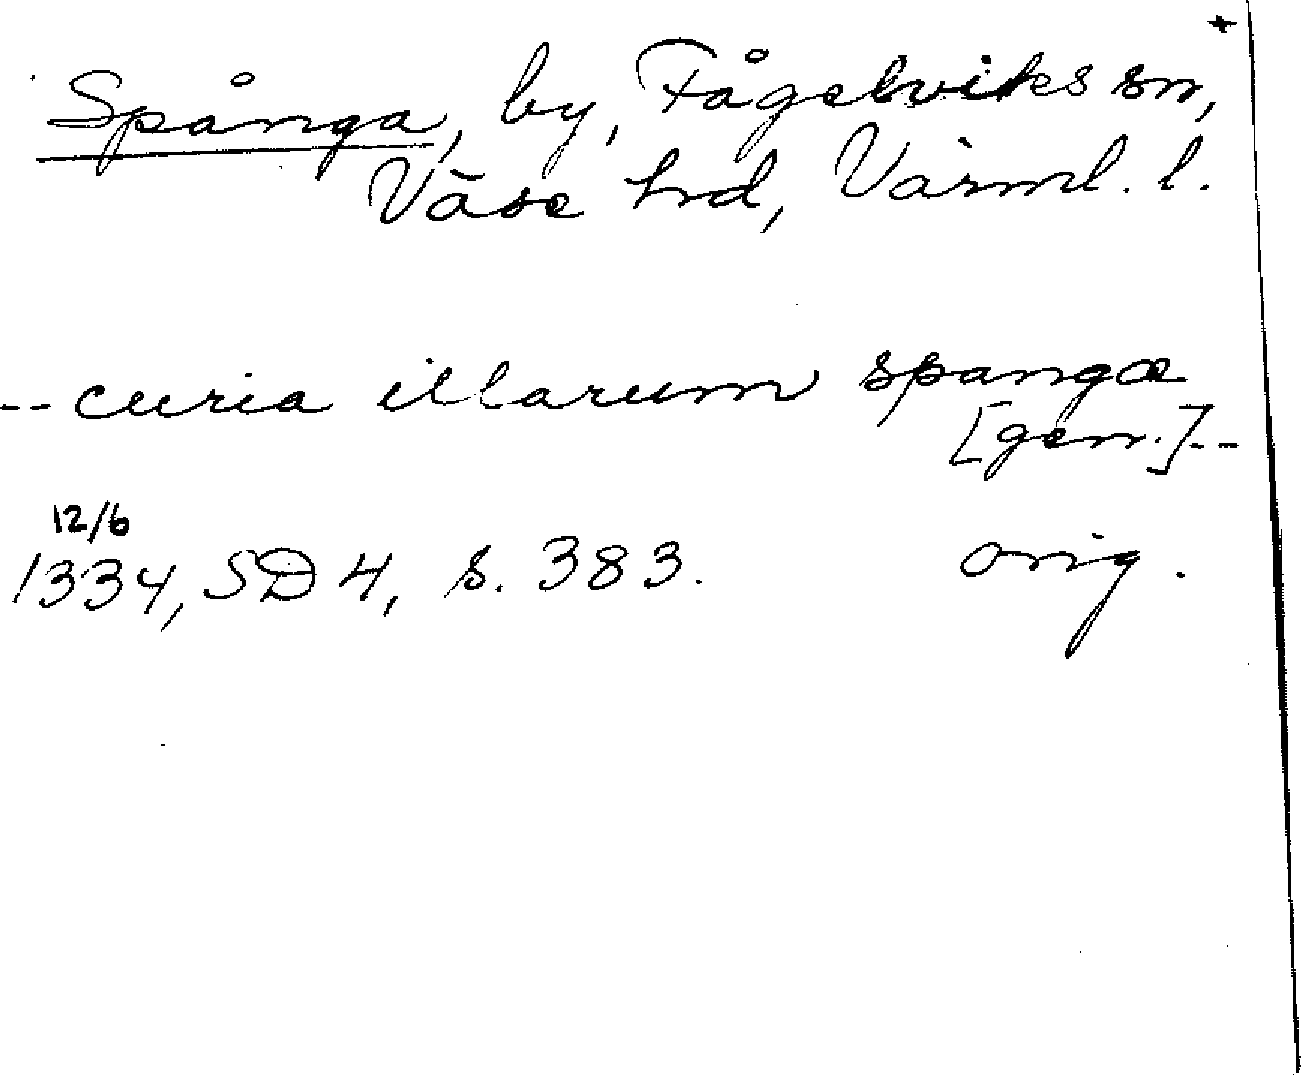 +
Spånga, by, Fågelviks sn,
Väse hrd, Värml. l.
-- curia illarum spangæ
[gen.] --
12/6
1334, SD 4, s. 383. orig.